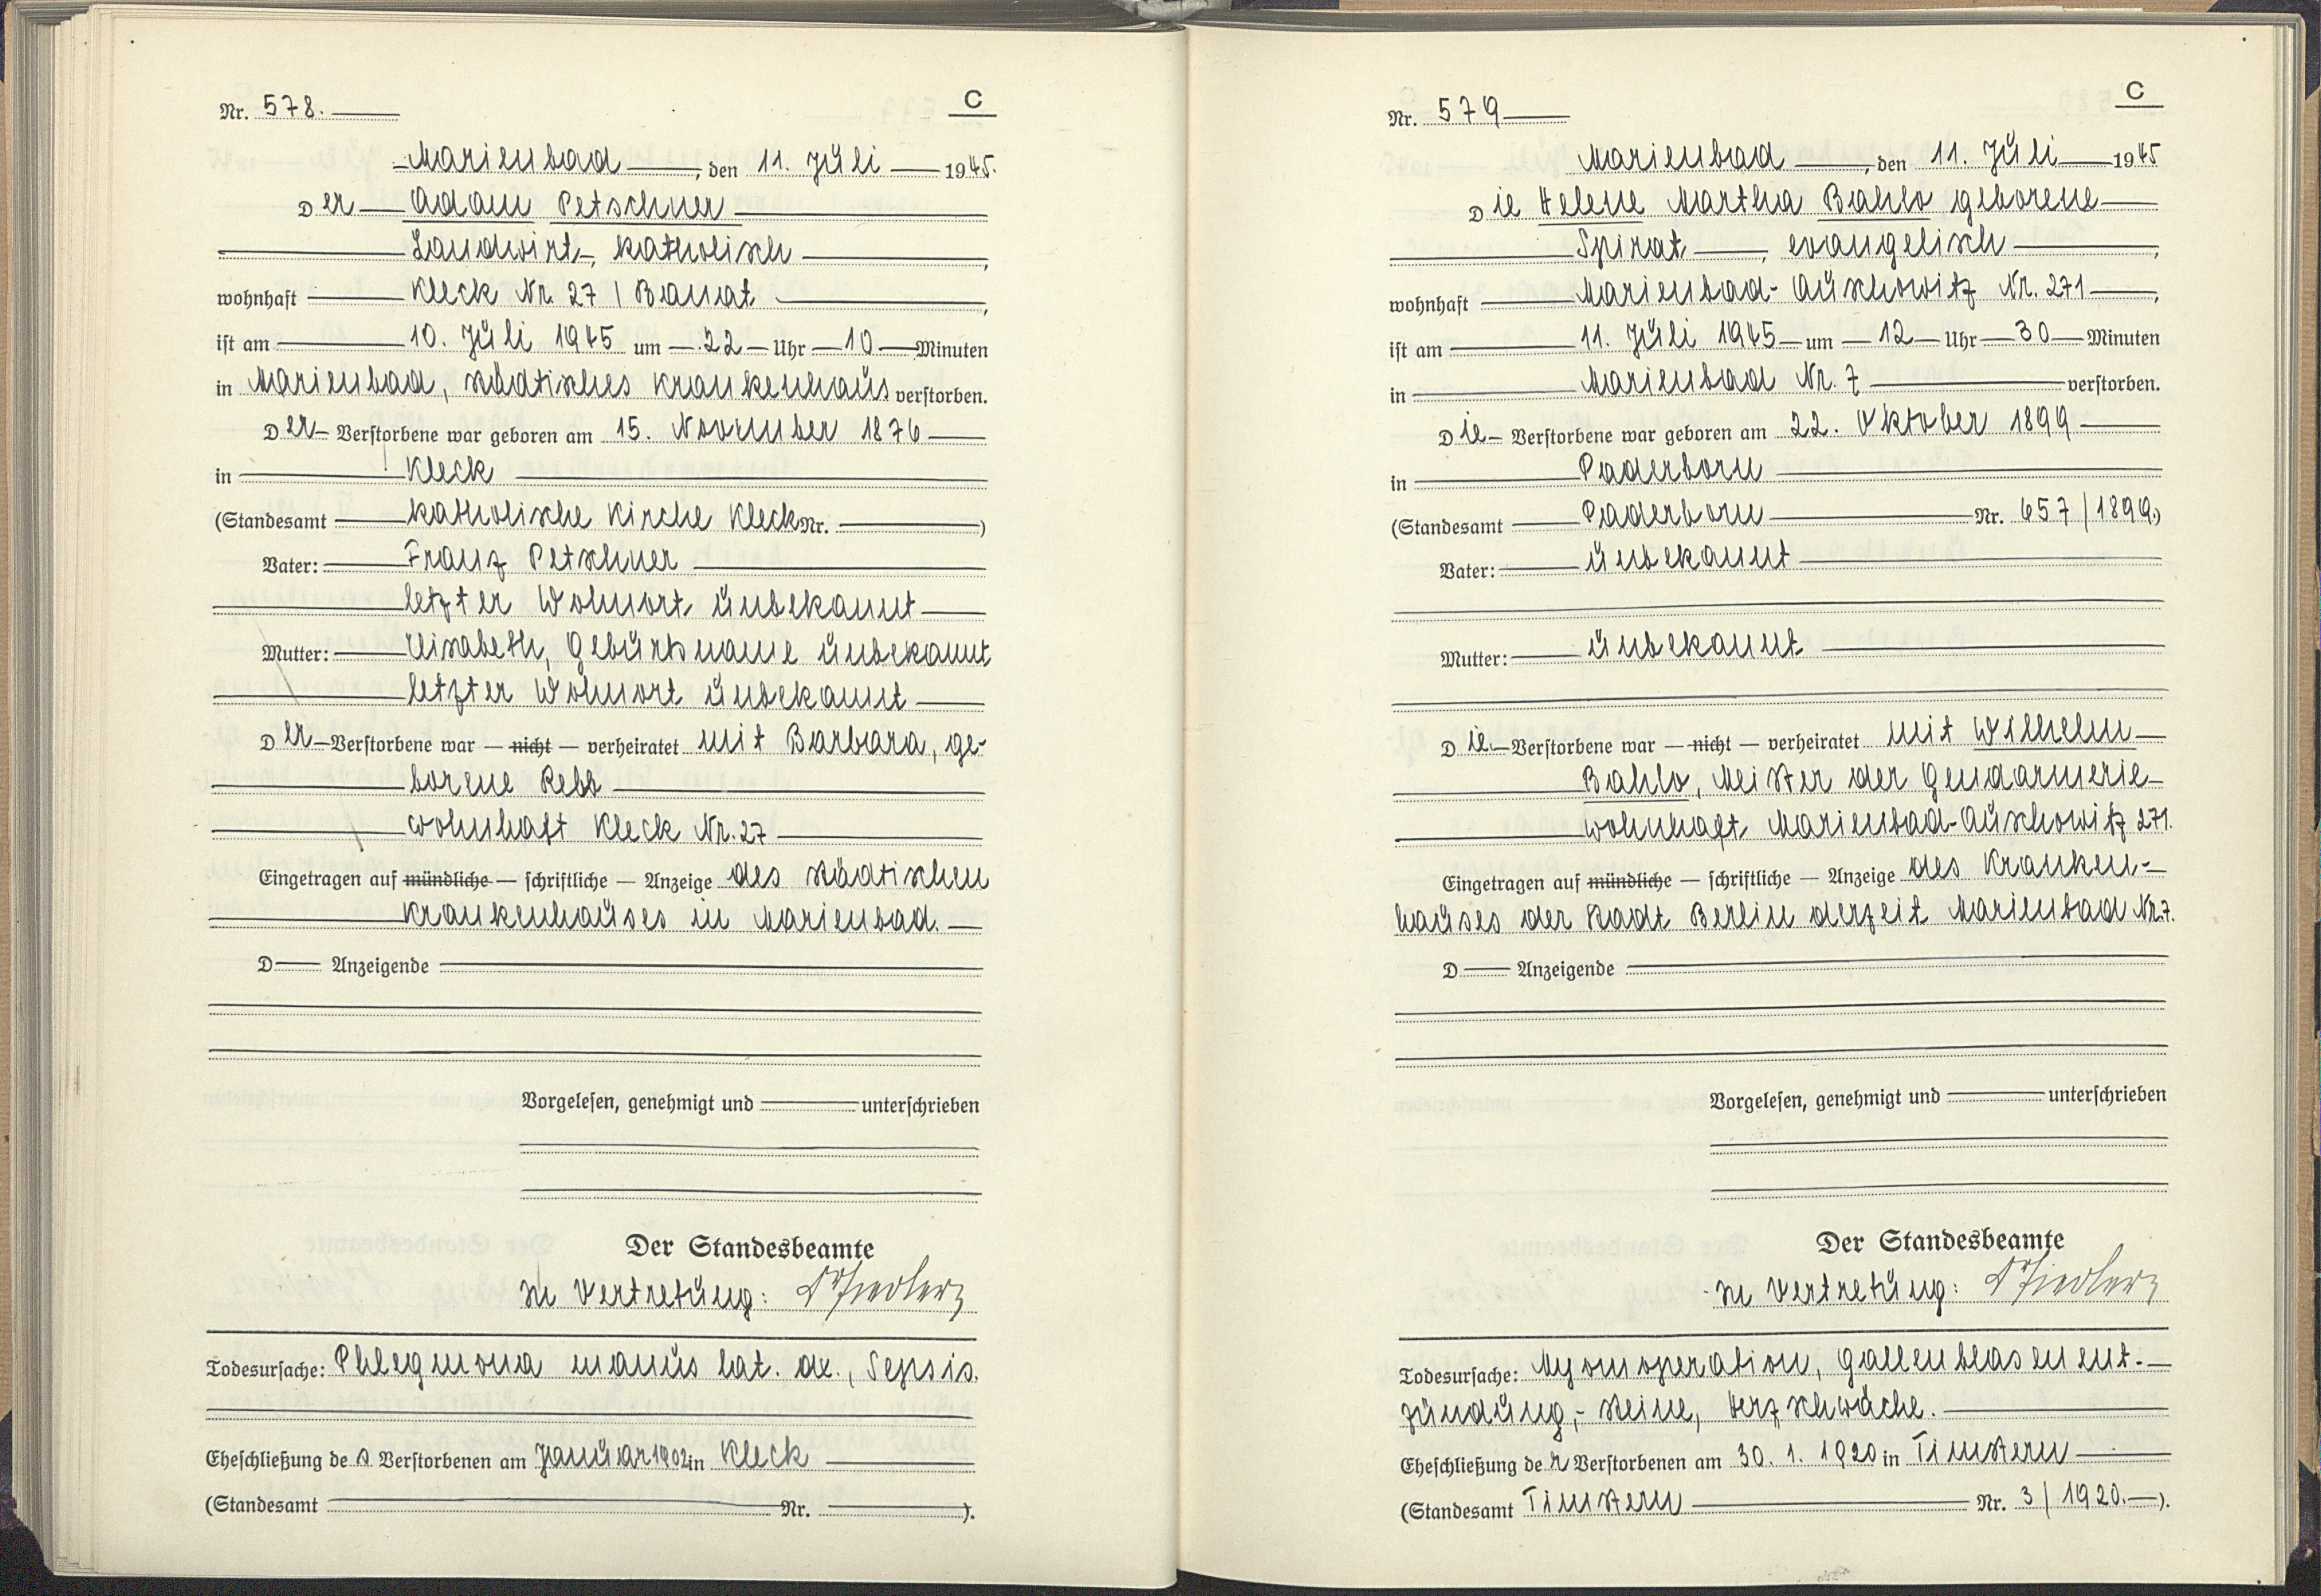 C
Nr. 578.
Marienbad, den 11. Juli 1945.
Der Adam Petschner
Landwirt, katholisch,
wohnhaft Kleck Nr. 27 / Banat,
ist am 10. Juli 1945 um 22 Uhr 10 Minuten
in Marienbad, städtisches Krankenhaus verstorben.
Der Verstorbene war geboren am 15. November 1876
in Kleck
(Standesamt katholische Kirche Kleck Nr. )
Vater: Franz Petschner
letzter Wohnort unbekannt
Mutter: Elisabeth, Geburtsname unbekannt
letzter Wohnort unbekannt
Der Verstorbene war — nicht — verheiratet mit Barbara, ge-
borene Rebb
wohnhaft Kleck Nr. 27
Eingetragen auf mündliche — schriftliche — Anzeige des städtischen
Krankenhauses in Marienbad.
D Anzeigende
Vorgelesen, genehmigt und unterschrieben
Der Standesbeamte
In Vertretung:
Todesursache: Phlegmona manus lat. dx., Sepsis.
Eheschließung des Verstorbenen am Januar 1902 in Kleck
(Standesamt Nr. ).
C
Nr. 579
Marienbad, den 11. Juli 1945
Die Helene Martha Bahlo geborene
Spirat, evangelisch,
wohnhaft Marienbad-Auschowitz Nr. 271,
ist am 11. Juli 1945 um 12 Uhr 30 Minuten
in Marienbad Nr. 7 verstorben.
Die Verstorbene war geboren am 22. Oktober 1899
in Paderborn
(Standesamt Paderborn Nr. 657/1899.)
Vater: unbekannt
Mutter: unbekannt
Die Verstorbene war — nicht — verheiratet mit Wilhelm
Bahlo, Meister der Gendarmerie
wohnhaft Marienbad-Auschowitz 271.
Eingetragen auf mündliche — schriftliche — Anzeige des Kranken-
hauses der Stadt Berlin derzeit Marienbad Nr. 7.
D Anzeigende
Vorgelesen, genehmigt und unterschrieben
Der Standesbeamte
In Vertretung:
Todesursache: Myomoperation, Gallenblasenent-
zündung,- steine, Herzschwäche.
Eheschließung der Verstorbenen am 30. 1. 1920 in Timstern
(Standesamt Timstern Nr. 3/1920. ).